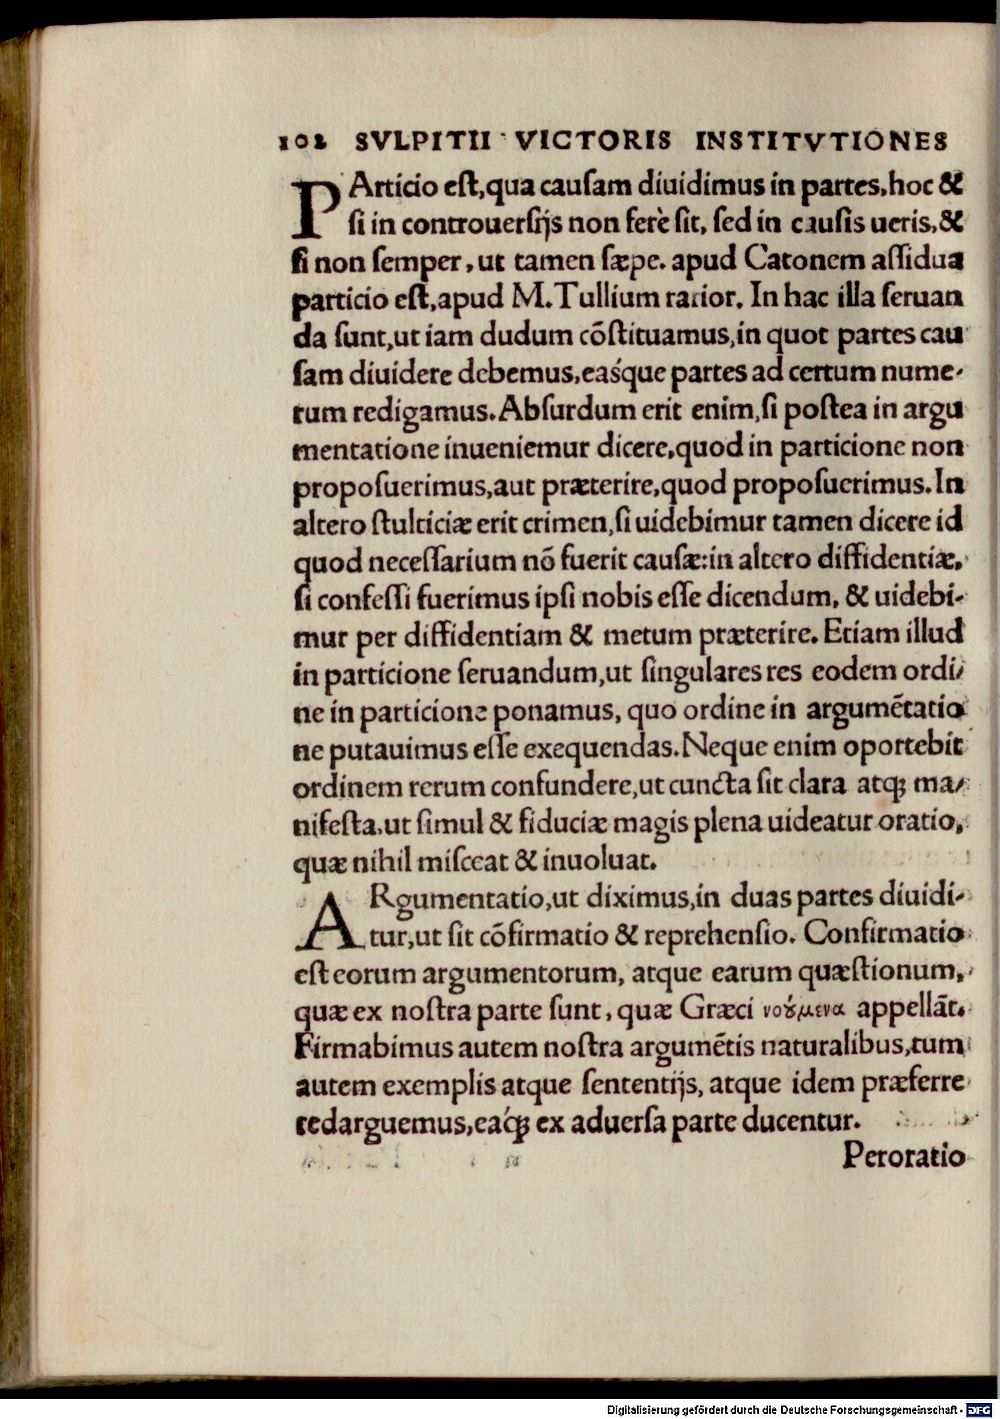 102 SVLPITII VICTORIS INSTITVTIONES
PArticio eſt,qua cauſam diuidimus in partes,hoc &
ſi in controuerſijs non ferè ſit, ſed in cauſis ueris,&
ſi non ſemper, ut tamen ſæpe. apud Catonem aſſidua
particio eſt,apud M.Tullium rarior. In hac illa ſeruan
da ſunt,ut iam dudum cōſtituamus,in quot partes cau
ſam diuidere debemus,eaśque partes ad certum nume-
rum redigamus.Abſurdum erit enim,ſi poſtea in argu
mentatione inueniemur dicere,quod in particione non
propoſuerimus,aut præterire,quod propoſuerimus.In
altero ſtulticiæ erit crimen,ſi uidebimur tamen dicere id
quod neceſſarium nō fuerit cauſæ:in altero diffidentiæ,
ſi confeſſi fuerimus ipſi nobis eſſe dicendum, & uidebi-
mur per diffidentiam & metum præterire. Etiam illud
in particione ſeruandum,ut ſingulares res eodem ordi-
ne in particione ponamus, quo ordine in argumētatio
ne putauimus eſſe exequendas.Neque enim oportebit
ordinem rerum confundere,ut cuncta ſit clara atq; ma-
nifeſta.ut ſimul & fiduciæ magis plena uideatur oratio,
quæ nihil miſceat & inuoluat.
ARgumentatio,ut diximus,in duas partes diuidi-
tur,ut ſit cōfirmatio & reprehenſio. Confirmatio
eſt eorum argumentorum, atque earum quæſtionum,
quæ ex noſtra parte ſunt, quæ Græci νούμενα appellāt.
Firmabimus autem noſtra argumētis naturalibus,tum
autem exemplis atque ſententijs, atque idem præferre
redarguemus,eaq́; ex aduerſa parte ducentur.
Peroratio
Digitalisierung gefördert durch die Deutsche Forschungsgemeinschaft - DFG